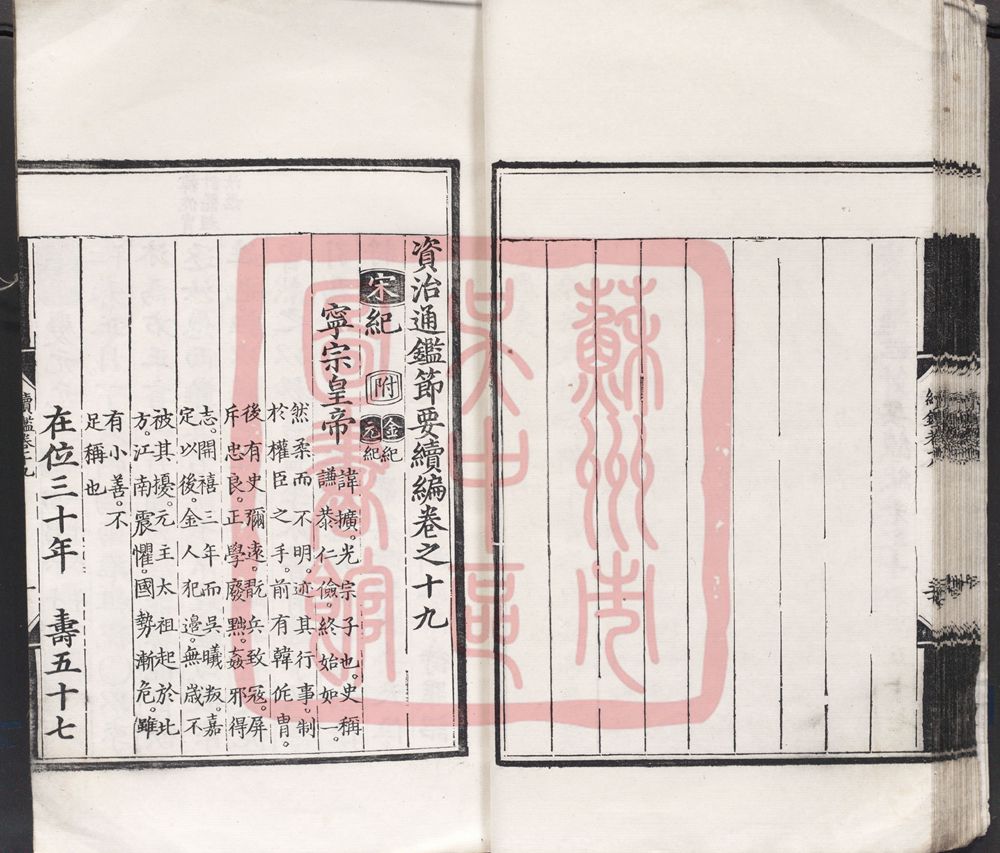 資治通鑑節要續編卷之十九
宋紀 附 金紀 元紀
寧宗皇帝 諱擴。光宗子也。史稱
謙恭仁儉。終始如一。
然柔而不明。迹其行事。制
於權臣之手。前有韓侂冑。
後有史彌遠。翫兵致寇。屏
斥忠良。正學廢黜。姦邪得
志。開禧三年而吳曦叛。嘉
定以後。金人犯邊。無歲不
被其擾。元主太祖起於北
方。江南震懼。國勢漸危。雖
有小善。不
足稱也
在位三十年 壽五十七
續鑑卷十九
蘇州市
吳中區
圖書館